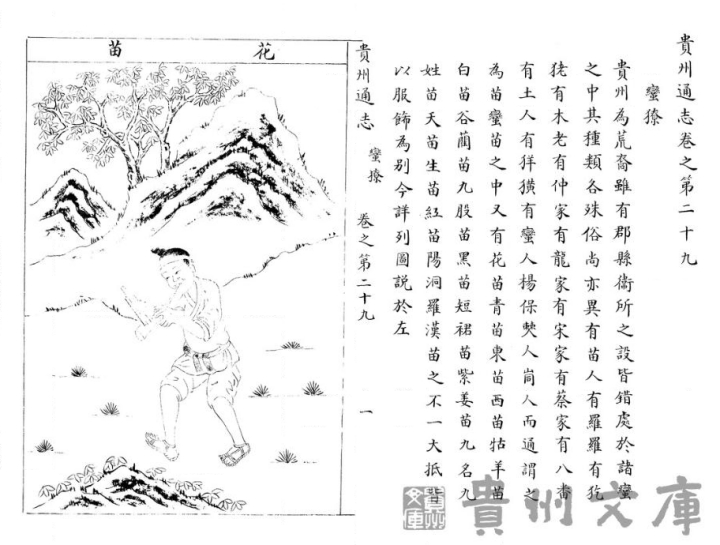 貴州通志卷之第二十九
蠻獠
貴州為荒裔雖有郡縣衛所之設皆錯處於諸蠻
之中其種類各殊俗尚亦異有苗人有羅羅有犵
狫有木老有仲家有龍家有宋家有蔡家有八番
有土人有徉獚有蠻人楊保僰人峝人而通謂之
為苗蠻苗之中又有花苗青苗東苗西苗牯羊苗
白苗谷藺苗九股苗黑苗短裙苗紫姜苗九名九
姓苗天苗生苗紅苗陽洞羅漢苗之不一大抵皆
以服飾為别今詳列圖説於左
貴州通志
蠻獠
卷之第二十九
一
花苗
貴州文庫
貴州文庫